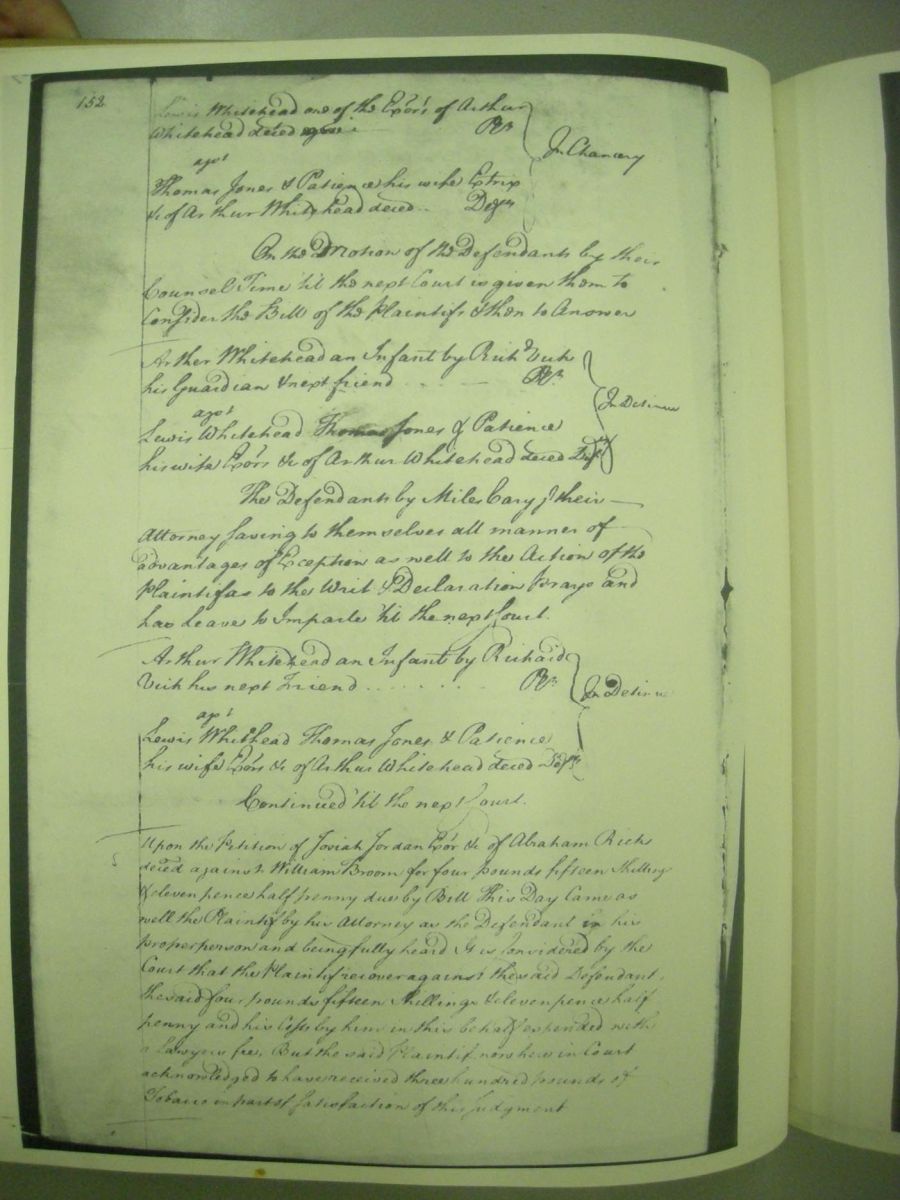 152
Lewis Whitehead one of the Exors of Arthur
Whitehead deced Plt
agst
In Chancery
Thomas Jones & Patience his wife Extrix
&c of Arthur Whitehead deced.. Defts
On the Motion of the Defendants by their
Counsel Time 'til the next Court is given them to
Consider the Bill of the Plaintifs & then to Answer
Arther Whitehead an Infant by Richd Vick
his Guardian & next friend Plt
agst
In Detinue
Lewis Whitehead Thomas Jones & Patience
his wife Exors &c of Arthur Whitehead deced Defts
The Defendants by Miles Cary their
Attorney saving to themselves all manner of
advantages of Exception as well to the Action of the
Plaintif as to the Writ & Declaration prays and
has Leave to Imparle 'til the next Court.
Arthur Whitehead an Infant by Richard
Vick his next Friend Plt
In Detinue
agst
Lewis Whithead Thomas Jones & Patience
his wife Exors &c of Arthur Whitehead deced Defts
Continued 'til the next Court.
Upon the Petition of Josiah Jordan Exor &c of Abraham Ricks
deced against William Broom for four pounds fifteen Shillings
& eleven pence half penny due by Bill This Day Came as
well the Plaintif by his Attorney as the Defendant in his
proper person and being fully heard It is Considered by the
Court that the Plaintif recover against the said Defendant
the said four pounds fifteen Shillings & eleven pence half
penny and his Costs by him in this behalf expended with
a Lawyers fee, But the said Plaintif now here in Court
acknowledged to have received three hundred pounds of
Tobacco in part of Satisfaction of this Judgment